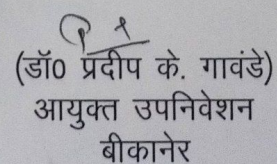 (डॉ0 प्रदीप के. गावंडे)
आयुक्त उपनिवेशन
बीकानेर